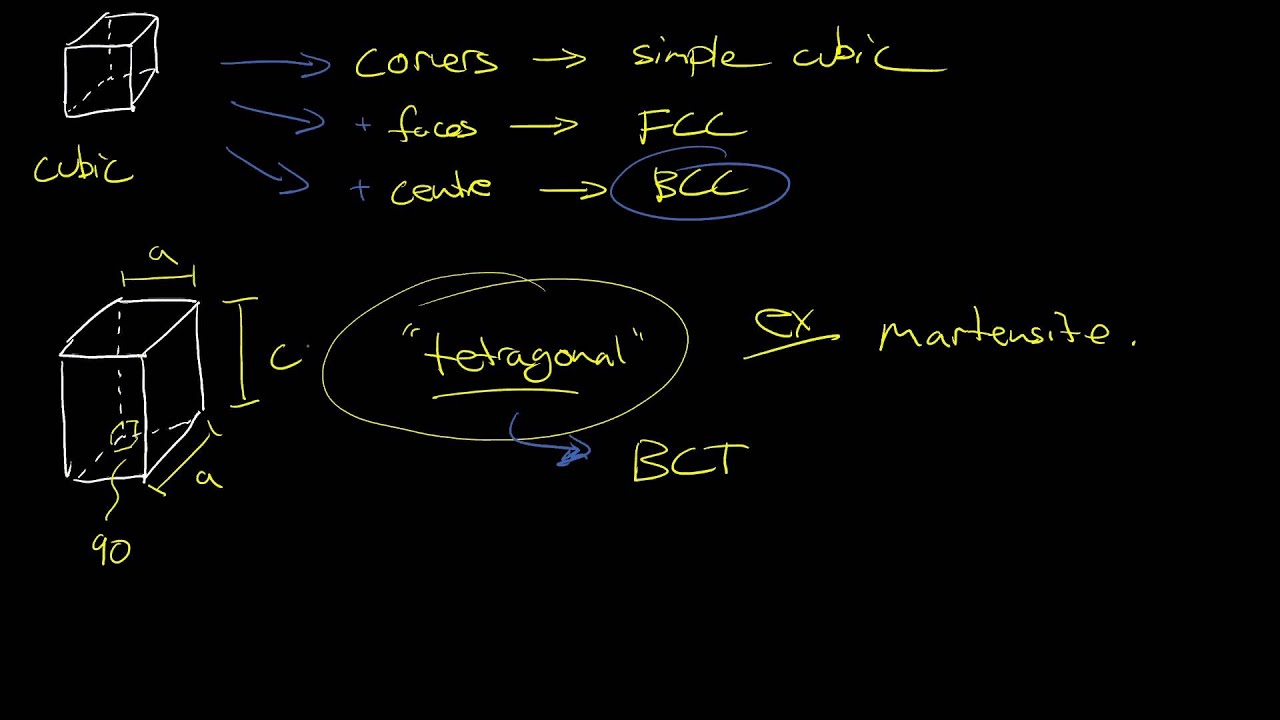 corners → simple cubic
+ faces → FCC
+ centre → BCC
cubic
a
c
"tetragonal"
ex martensite.
BCT
a
90